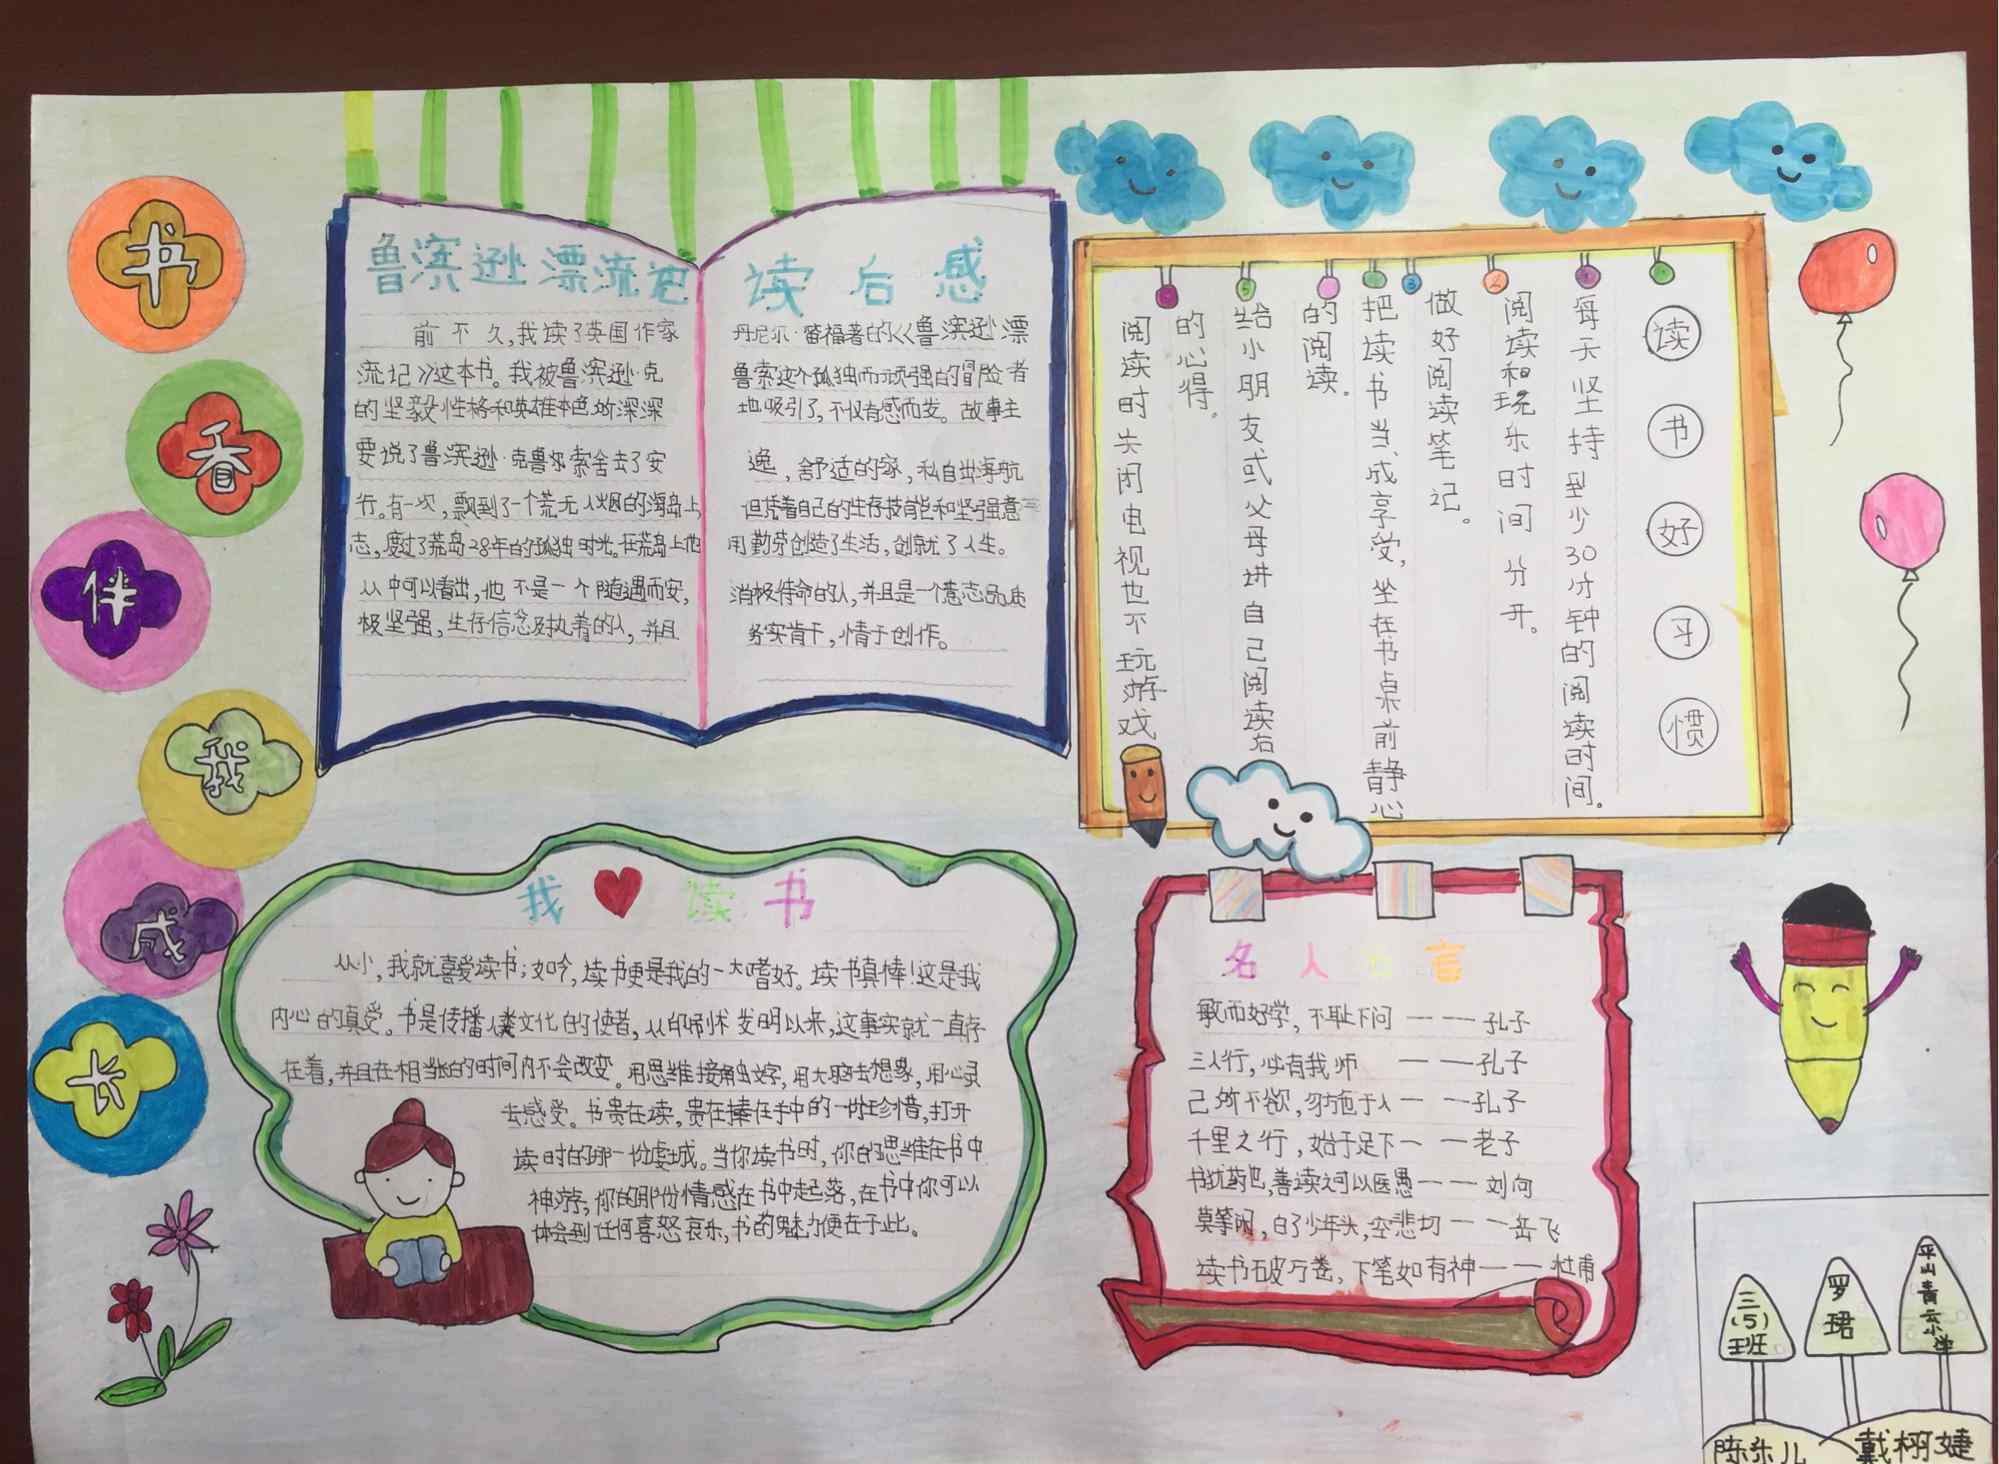 书
香
伴
我
成
长
鲁滨逊漂流记 读后感
前不久,我读了英国作家 丹尼尔·笛福著的《鲁滨逊漂
流记》这本书。我被鲁滨逊·克 鲁索这个孤独而顽强的冒险者
的坚毅性格和英雄本色所深深 地吸引了,不仅有感而发。故事主
要说了鲁滨逊·克鲁索舍去了安 逸,舍舒适的家,私自出海航
行。有一次,飘到了一个荒无人烟的海岛上, 但凭着自己的生存技能和坚强意
志,度过了荒岛28年的孤独时光。在荒岛上他 用勤劳创造了生活,创就了人生。
从中可以看出,他不是一个随遇而安, 消极待命的人,并且是一个意志品质
极坚强,生存信念及执着的人,并且 务实肯干,情于创作。
读书好习惯
每天坚持到少30分钟的阅读时间。
阅读和玩乐时间分开。
做好阅读笔记。
把读书当成享受,坐在书桌前静心
的阅读。
给小朋友或父母讲自己阅读后
的心得。
阅读时关闭电视也不玩游戏
我 读书
从小,我就喜爱读书;如今,读书更是我的一大嗜好。读书真棒!这是我
内心的真受。书是传播人类文化的使者,从印刷术发明以来,这事实就一直存
在着,并且在相当长的时间内不会改变。用思维接触文字,用大脑去想象,用心灵
去感受。书贵在读,贵在捧在手中的一份珍惜,打开
读时的那一份虔诚。当你读书时,你的思维在书中
神游;你的那份情感在书中起落,在书中你可以
体会到任何喜怒哀乐,书的魅力便在于此。
名人名言
敏而好学,不耻下问——孔子
三人行,必有我师——孔子
己所不欲,勿施于人——孔子
千里之行,始于足下——老子
书犹药也,善读之可以医愚——刘向
莫等闲,白了少年头,空悲切——岳飞
读书破万卷,下笔如有神——杜甫
平山青云小学
罗珺
三(5)班
陈乐儿
戴栩婕